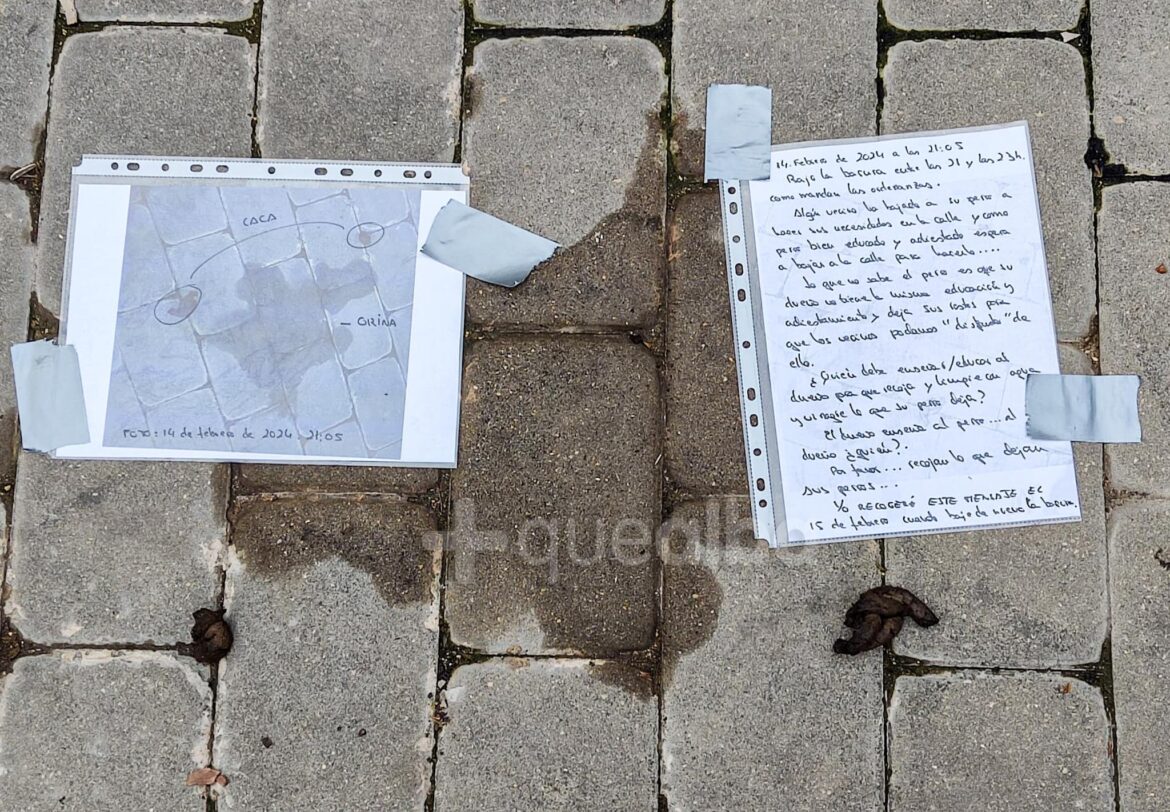 CACA
— ORINA
FOTO: 14 de febrero de 2024, 21:05
14. Febrero de 2024 a las 21:05
Bajo la basura entre las 21 y las 23h.
como mandan las ordenanzas.
Algún vecino ha bajado a su perro a
hacer sus necesidades en la calle y como
perro bien educado y adiestrado espera
a bajar a la calle para hacerlo....
Lo que no sabe el perro es que su
dueño no tiene la misma educación y
adiestramiento y deja sus restos para
que los vecinos podamos "disfrutar" de
ello.
¿Quién debe enseñar/educar al
dueño para que recoja y limpie con agua
y vinagre lo que su perro deja?
El dueño enseña al perro... al
dueño ¿quién?.
Por favor... recojan lo que dejan
sus perros...
YO RECOGERÉ ESTE MENSAJE EL
15 de febrero cuando baje de nuevo la basura.
+quealbo